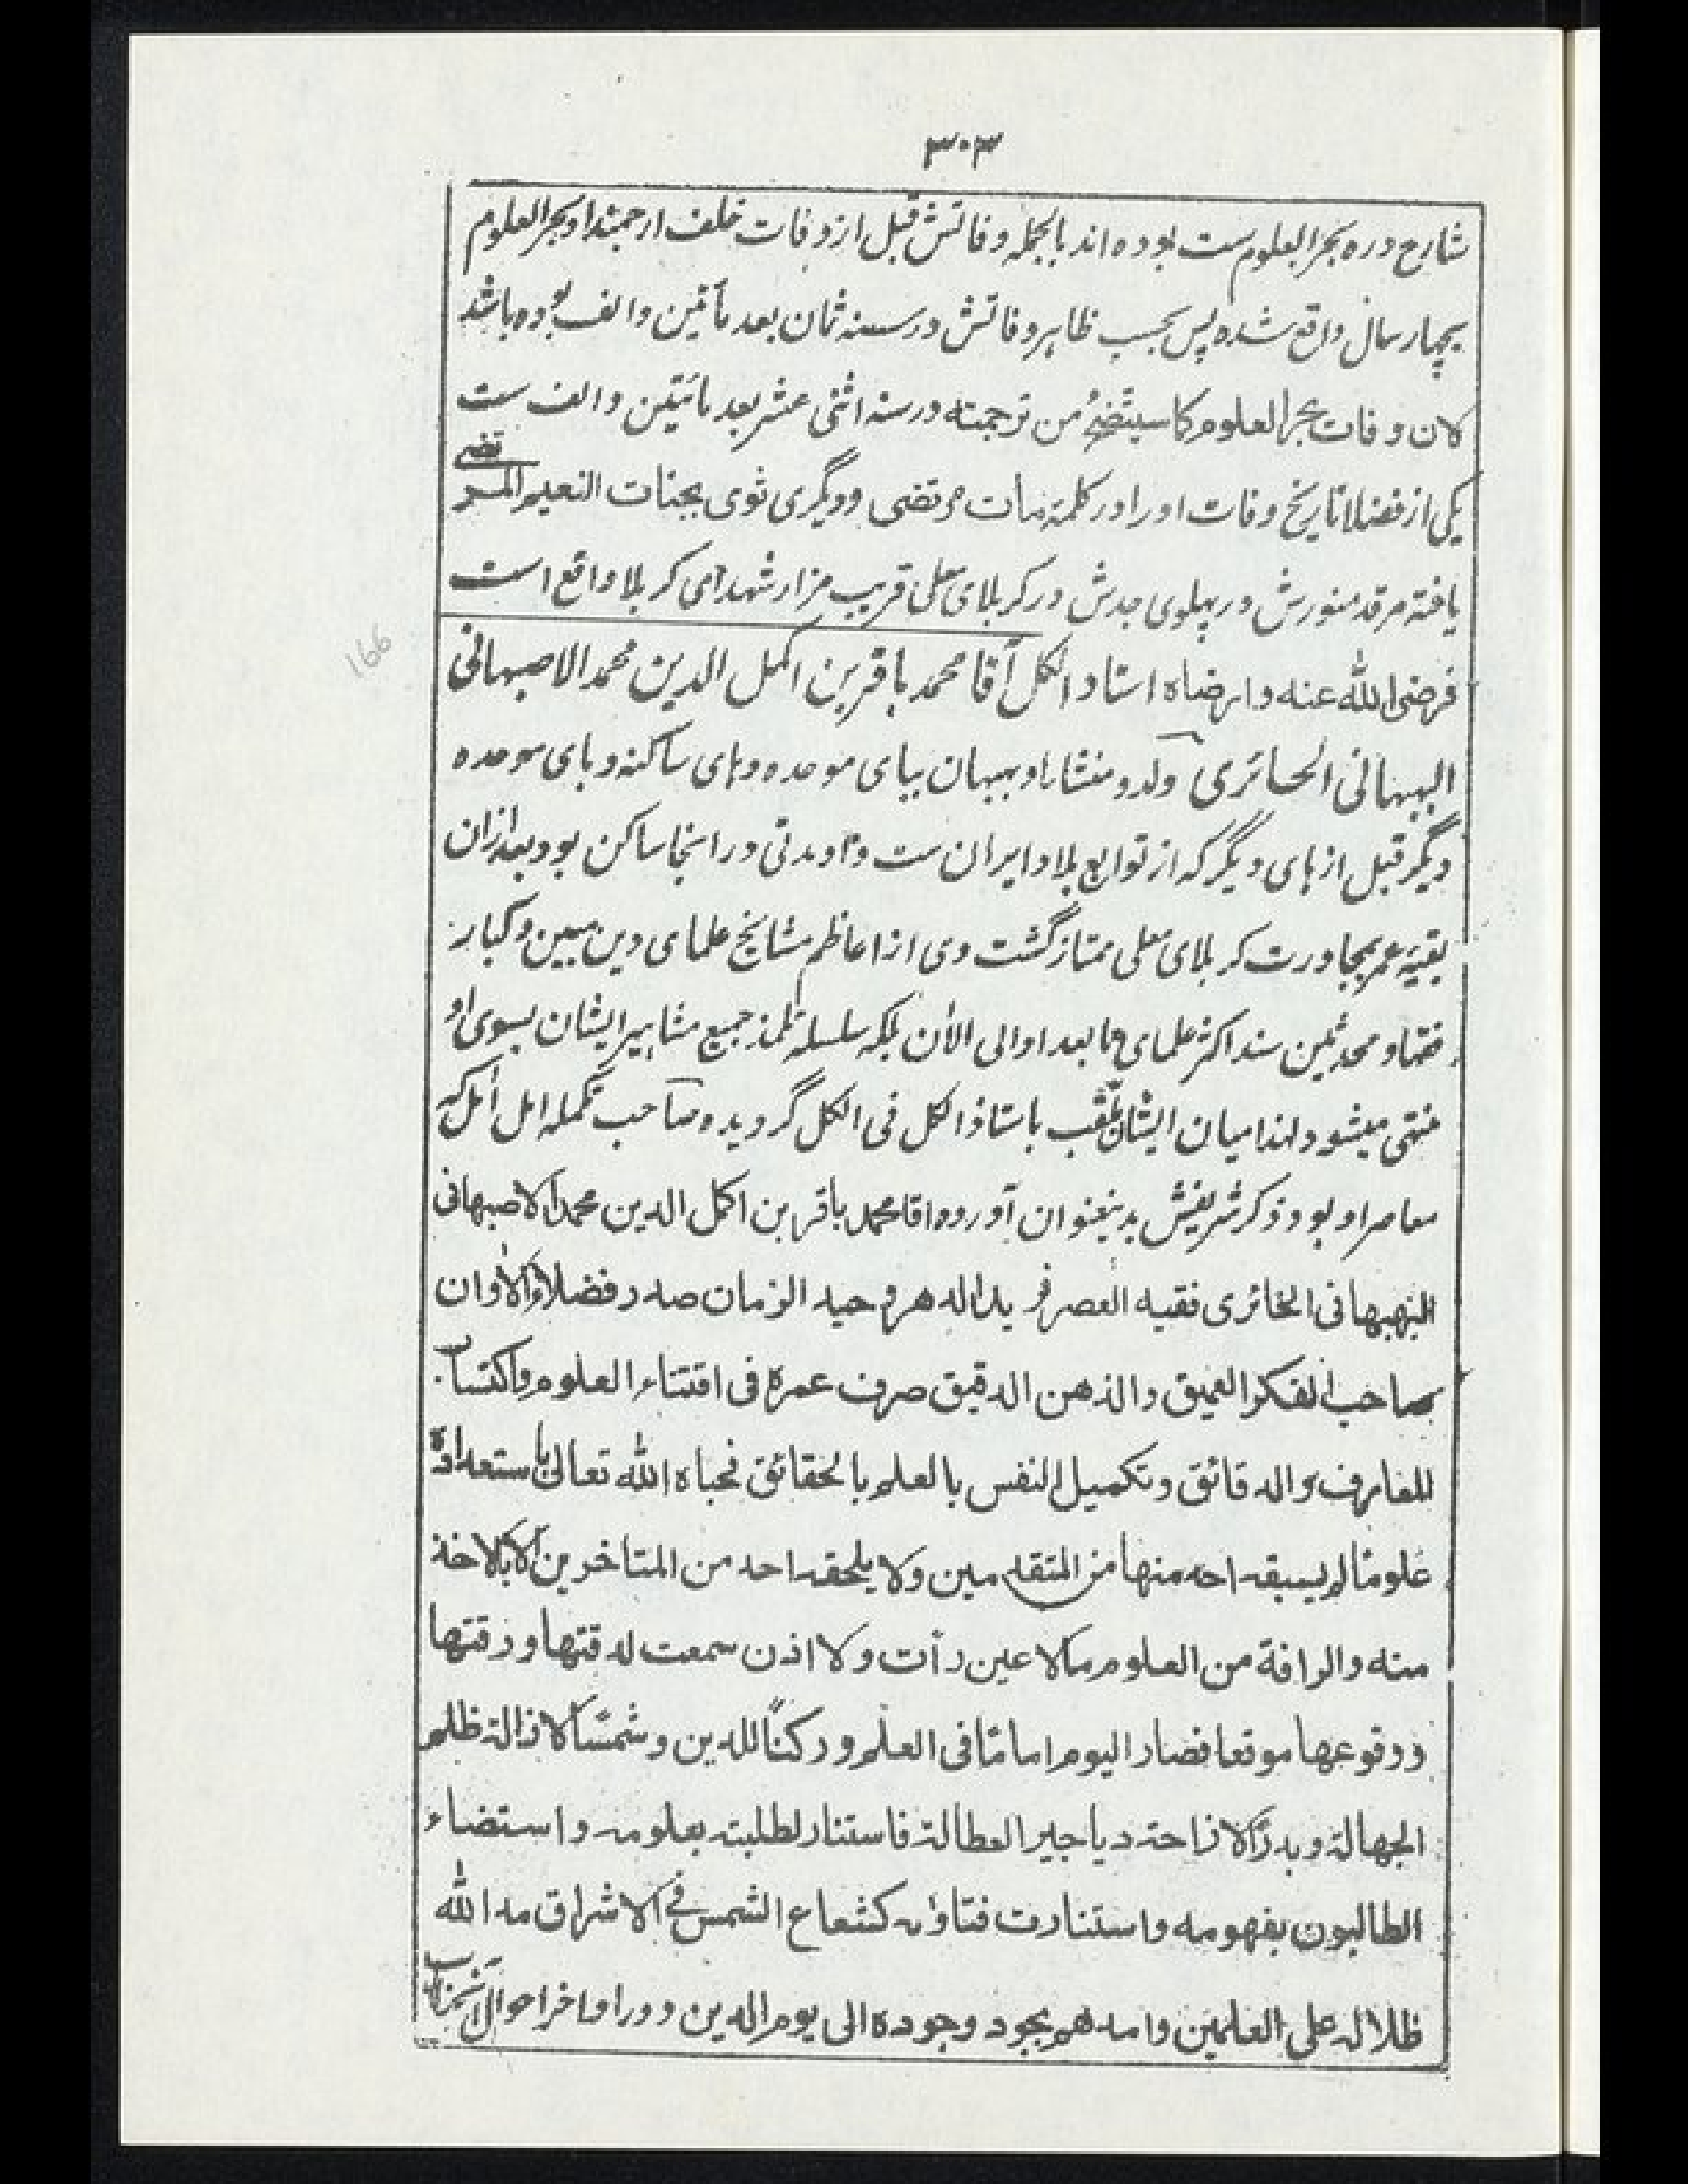 ۳۰۳
شارح دره بحر العلوم ست بوده اند بالجمله وفاتش قبل از وفات خلف ارجمند او بحر العلوم
بچهار سال واقع شده پس بحسب ظاهر وفاتش در سنه ثمان بعد مأتین والف بوده باشد
لان وفات بحر العلوم کما سیتضح من ترجمته در سنه اثنی عشر بعد مائتین والف ست
یکی از فضلا تاریخ وفات او را در کلمته مات مرتضی و دیگری ثوی بجنات النعیم المر
تضی
یافته مرقد منورش در پهلوی جدش در کربلای معلی قریب مزار شهدای کربلا واقع است
166
فرضی الله عنه وارضاه استاد الکل آقا محمد باقر بن اکمل الدین محمد الاصبهانی
البهبهانی الحائری ولد و منشار او بهبهان ببای موحده وهای ساکنه و بای موحده
دیگر قبل از های دیگر که از توابع بلاد ایران ست و او مدتی در انجا ساکن بود بعد ازان
بقیۀ عمر بمجاورت کربلای معلی ممتاز گشت وی از اعاظم مشایخ علمای دین مبین و کبار
فقها و محدثین سند اکثر علمای ما بعد او الی الآن بلکه سلسله تلمذ جمیع مشاهیر ایشان بسوی او
منتهی میشود لهذا میان ایشان ملقب باستاذ الکل فی الکل گردیده صاحب تکمله امل آمل که
معاصر او بود ذکر شریفش بدینعنوان آورده اقا محمد باقر بن اکمل الدین محمد الاصبهانی
البهبهانی الحائری فقیه العصر فرید الدهر وحید الزمان صدر فضلاء الاوان
صاحب الفکر العمیق والذهن الدقیق صرف عمره فی اقتناء العلوم واکتساب
المعارف والدقائق وتکمیل النفس بالعلم بالحقائق فحباه الله تعالی باستعداده
علوما لم یسبقه احد منها من المتقدمین ولا یلحقه احد من المتاخرین الا بالاخذ
منه والرافة من العلوم مالا عین رأت ولا اذن سمعت لدقتها ورقتها
ووقوعها موقعا فصار الیوم اماما فی العلم ورکنا للدین وشمسا لازالة ظلم
الجهالة وبدرا لازاحة دیاجیر العطالة فاستنار لطلبته بعلومه واستضاء
الطالبون بفهومه واستنارت فتاواه کشعاع الشمس فی الاشراق مد الله
ظلاله علی العلمین وامدهم بجود وجوده الی یوم الدین و در اواخر احوال آنجناب